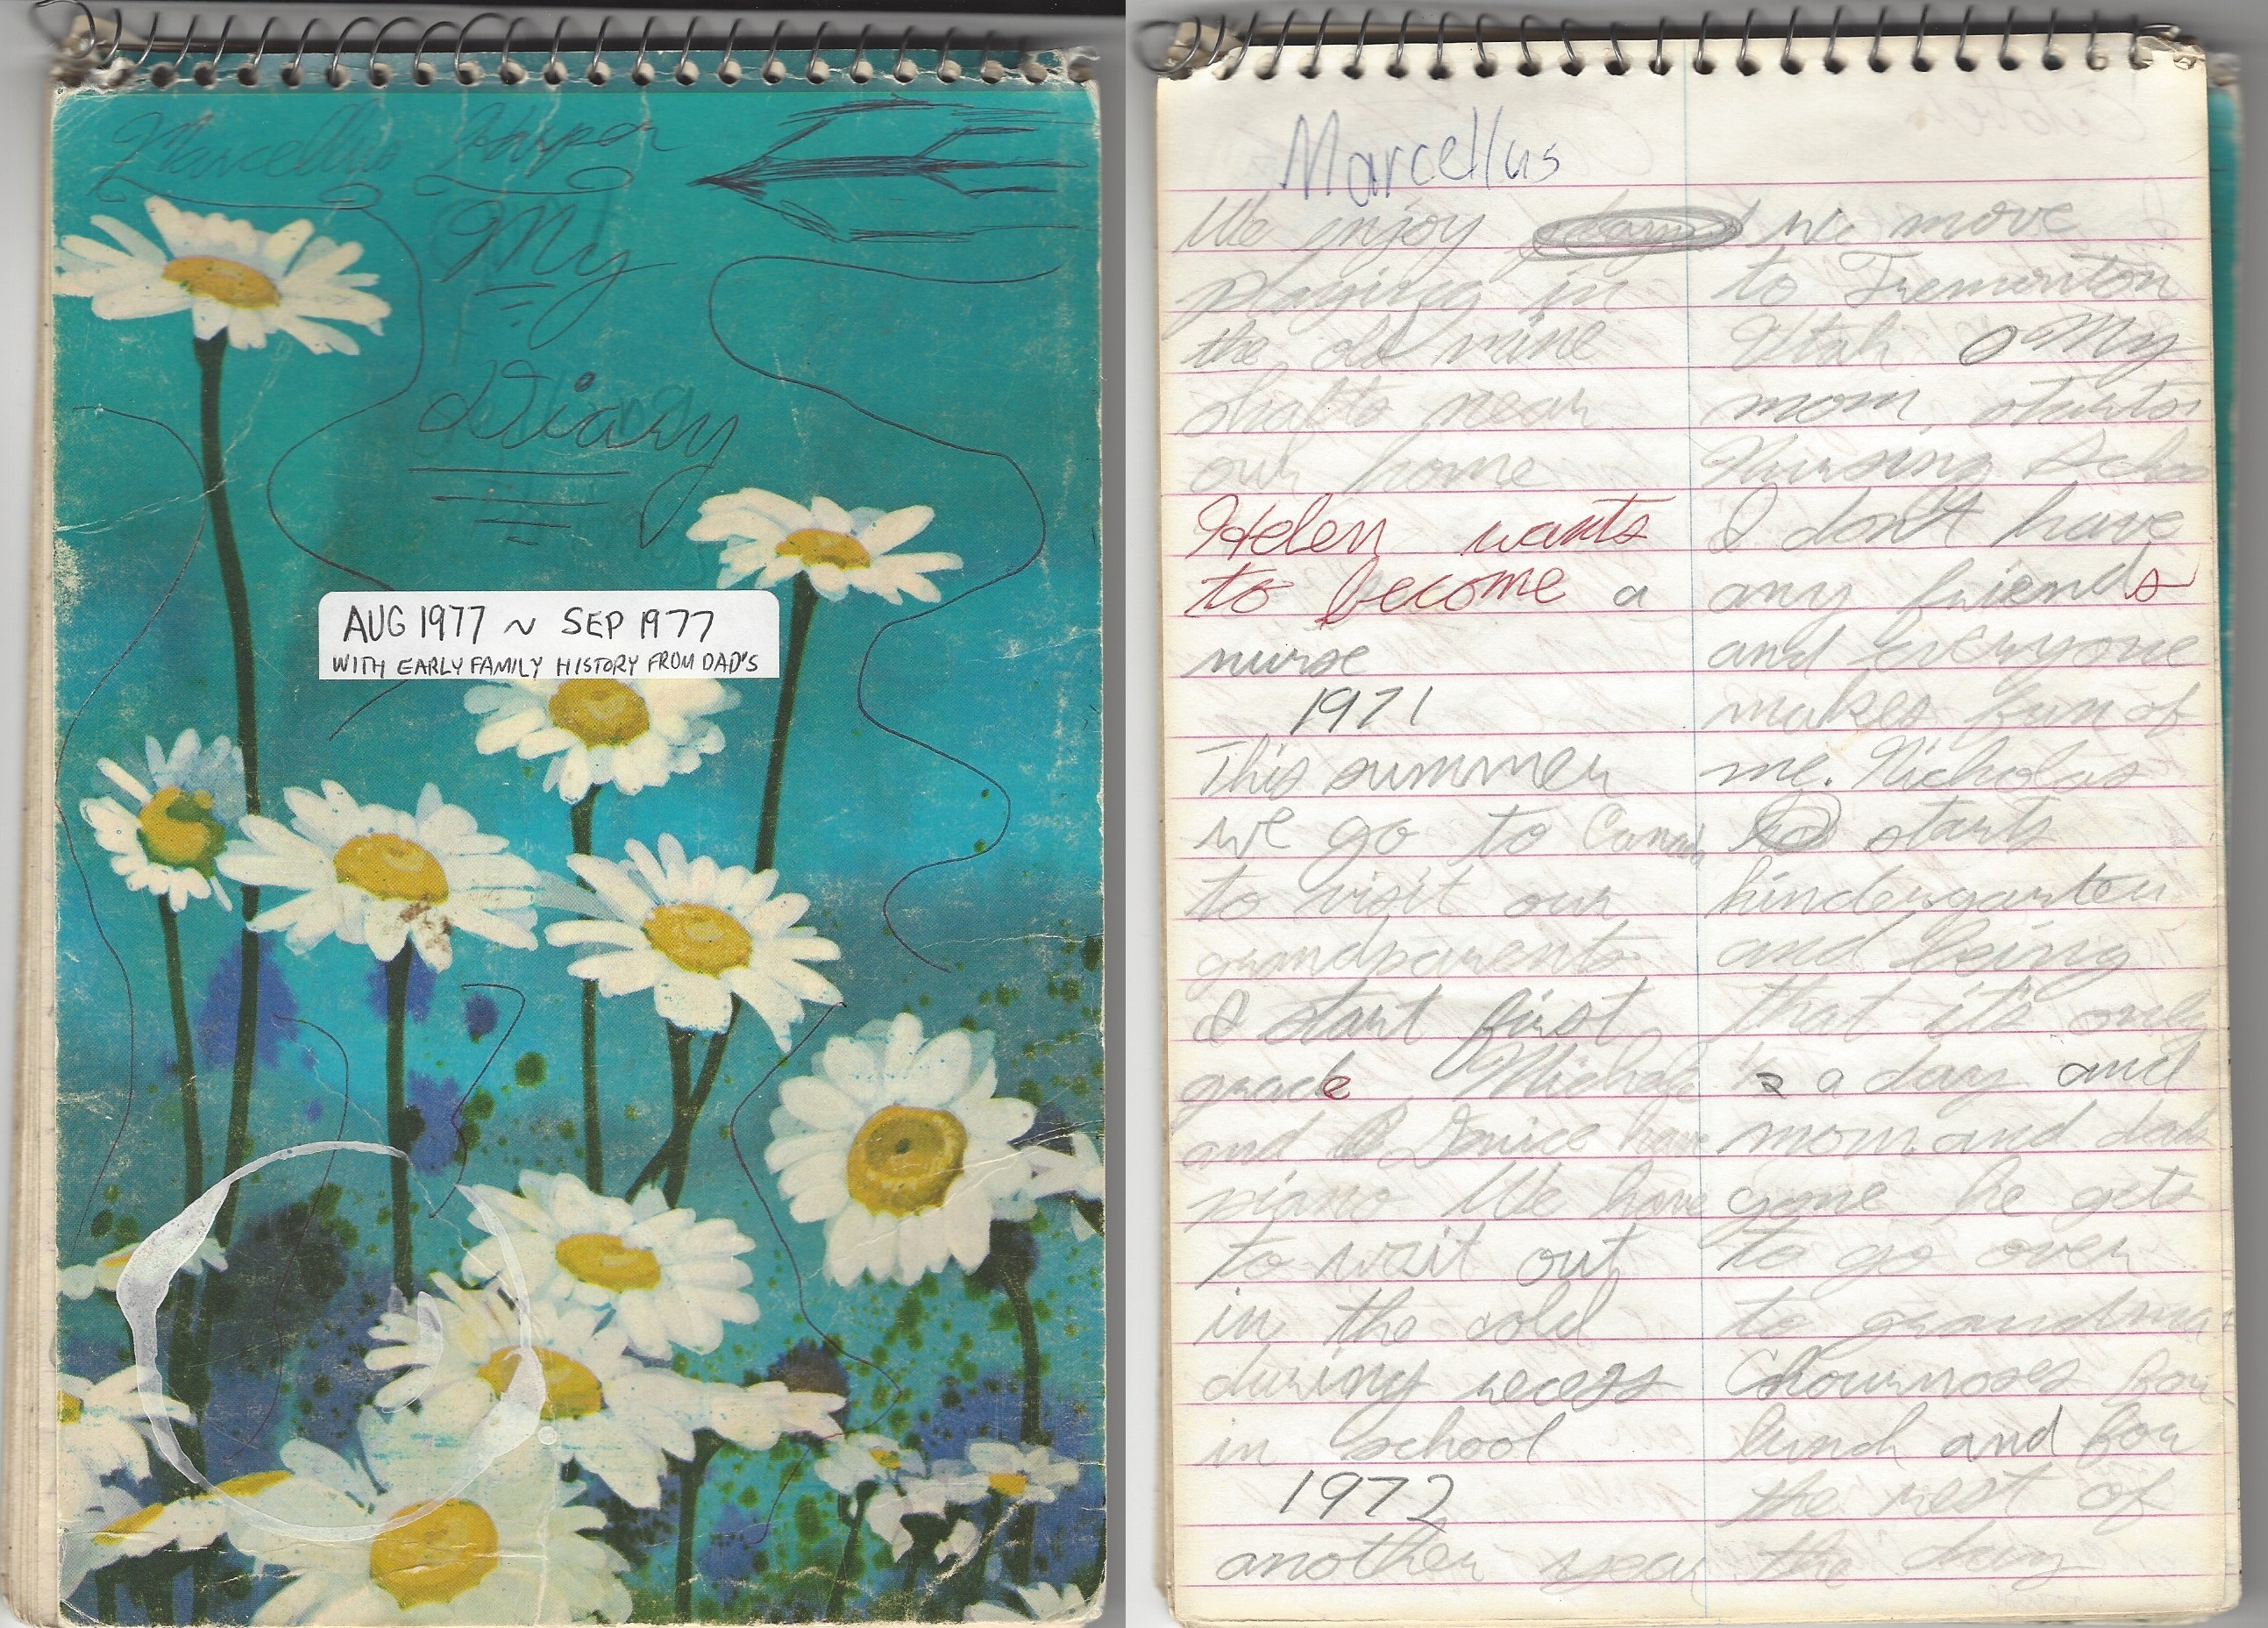 Marcellus Harper
My
Diary
AUG 1977 ~ SEP 1977
WITH EARLY FAMILY HISTORY FROM DAD'S
Marcellus
We enjoy
playing in
the old mine
shafts near
our home
Helen wants
to become a
nurse
1971
This summer
we go to Canada
to visit our
grandparents
I start first
grade
and have
piano We have
to wait out
in the cold
during recess
in school
1972
another year
we move
to Tremonton
Utah My
mom starts
Nursing School
I don't have
any friends
and everyone
makes fun of
me. Nicholas
starts
kindergarten
and being
that it's only
½ a day and
mom and dads
gone he gets
to go over
to grandma
for
lunch and for
the rest of
the day